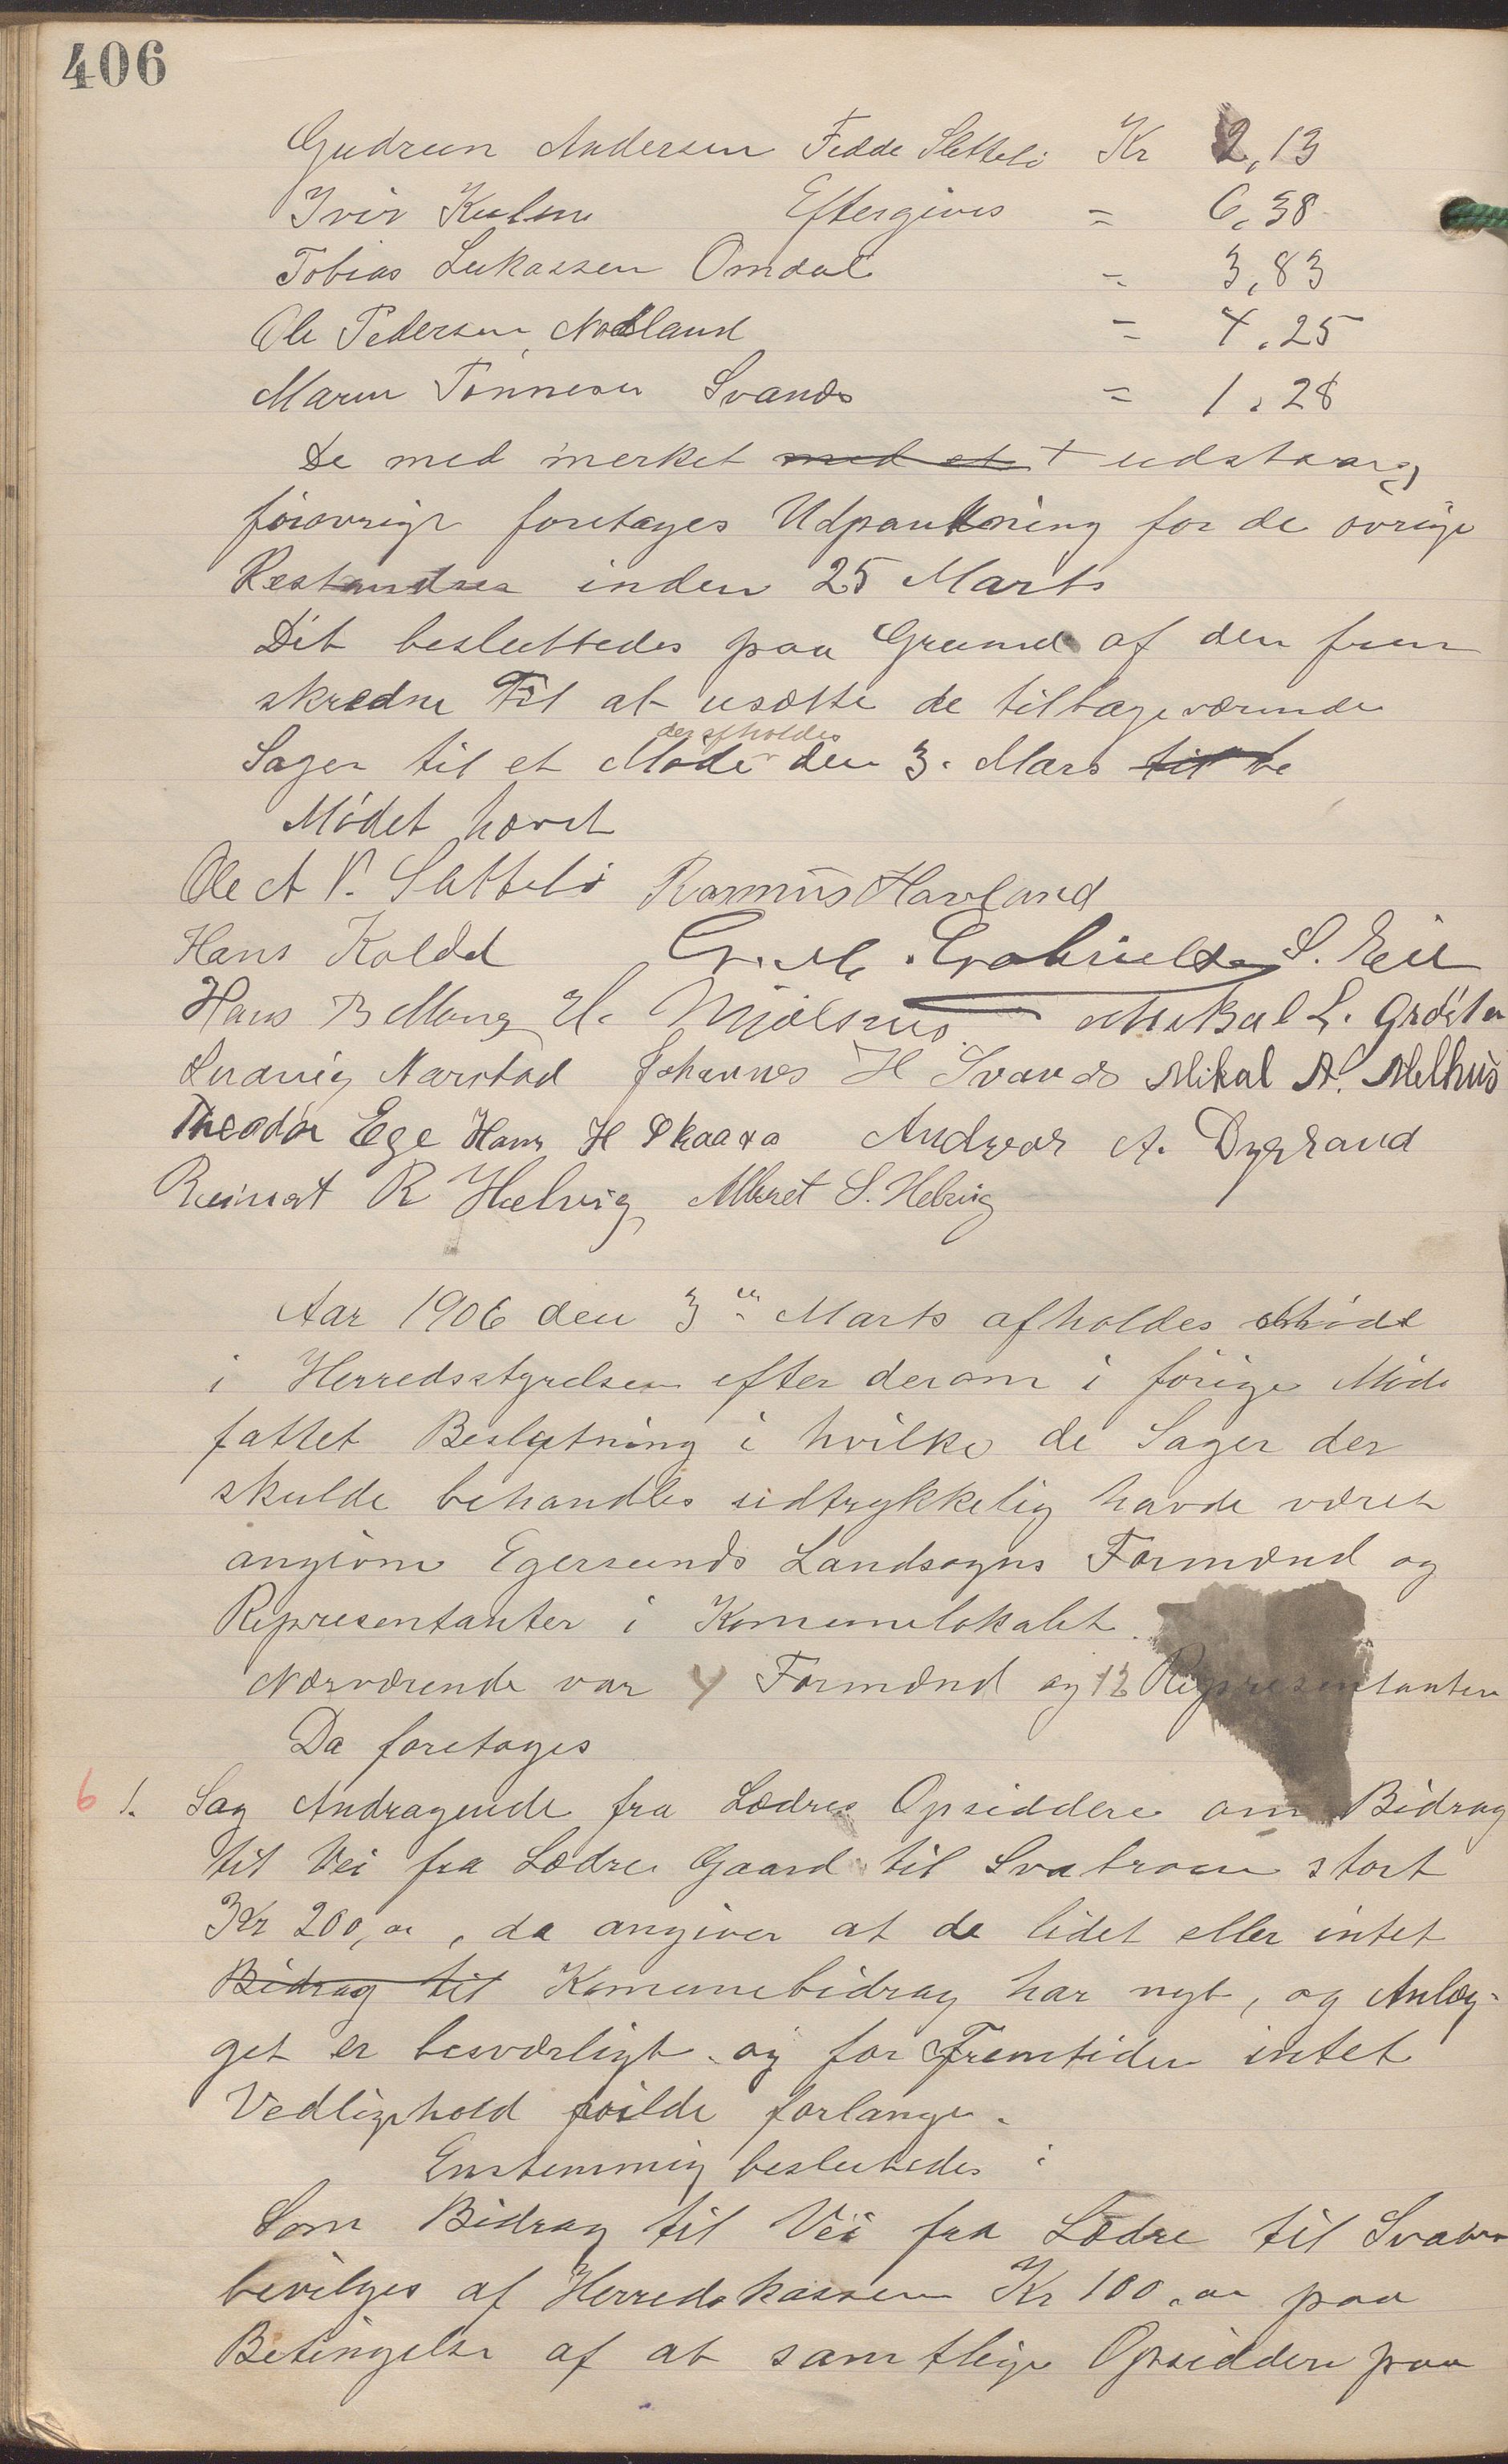 406
Gudrun Andersen Fedde Slettebö Kr 2,13
Iver Kulsen Eftergives = 6,38
Tobias Lukassen Omdal = 3,83
Ole Pedersen Nodland = 4,25
Maren Tönnesen Svanes = 1,28
De med merket med et + udstaar og
forøvrigt foretages Udpantning for de øvrige
Restandser inden 25 Marts
Det besluttedes paa Grund af den frem
skredne Tid at usætte de tilbageværende
der afholdes
Sager til et Møde den 3. Mars til be
Mødet hævet
Ole A V. Slettebö Rasmus Havland
Hans Koldal G. M. Gabrielsen S. Eie
Hans B Mong H. Mjølsnes Mikal L. Grøsten
Ludvig Narstad Johannes H Svanes Mikal A. Melhus
Theodor Ege Hans H Skaara Andreas A. Dyrland
Reinert R Helvig Albret S. Helvig
Aar 1906 den 3 Marts afholdes Møde
i Herredsstyrelsen efter derom i forige Møde
fattet Beslutning i hvilke de Sager der
skulde behandles udtrykkelig havde været
angivne Egersunds Landsogns Formænd og
Representanter i Komunelokalet.
Nærværende var 4 Formænd og 12 Representanter
Da foretages
6 1. Sag Andragende fra Lædres Opsiddere om Bidrag
til Vei fra Lædre Gaard til Svabroen stort
Kr 200,oo, da angiver at de lidet eller intet
Bidrag til Komunebidrag har nyt, og Anlæg-
get er besværligt og for Fremtiden intet
Vedligehold vilde forlange.
Enstemmig besluttedes:
Som Bidrag til Vei fra Lædre til Svabro
bevilges af Herredskassen Kr 100,oo paa
Betingelse af at samtlige Opsiddere paa